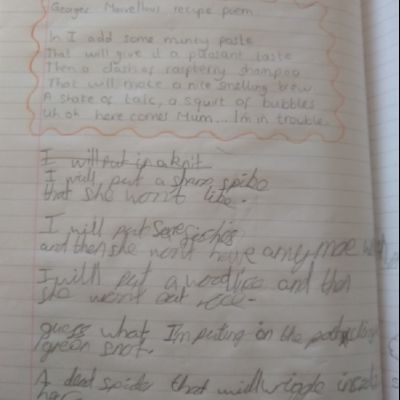 Georges Marvellous recipe poem
In I add some minty paste
That will give it a pleasant taste
Then a dash of raspberry shampoo
That will make a nice smelling brew
A shake of talc, a squirt of bubbles
Uh oh here comes Mum... Im in trouble
I will put in a knit
I will put a spibe
that she wont like.
I will put some
and then she wont have any more
I will put a woodlice and then
she wont eat
guess what Im puting in the
green snot.
A dead spider that will wiggle